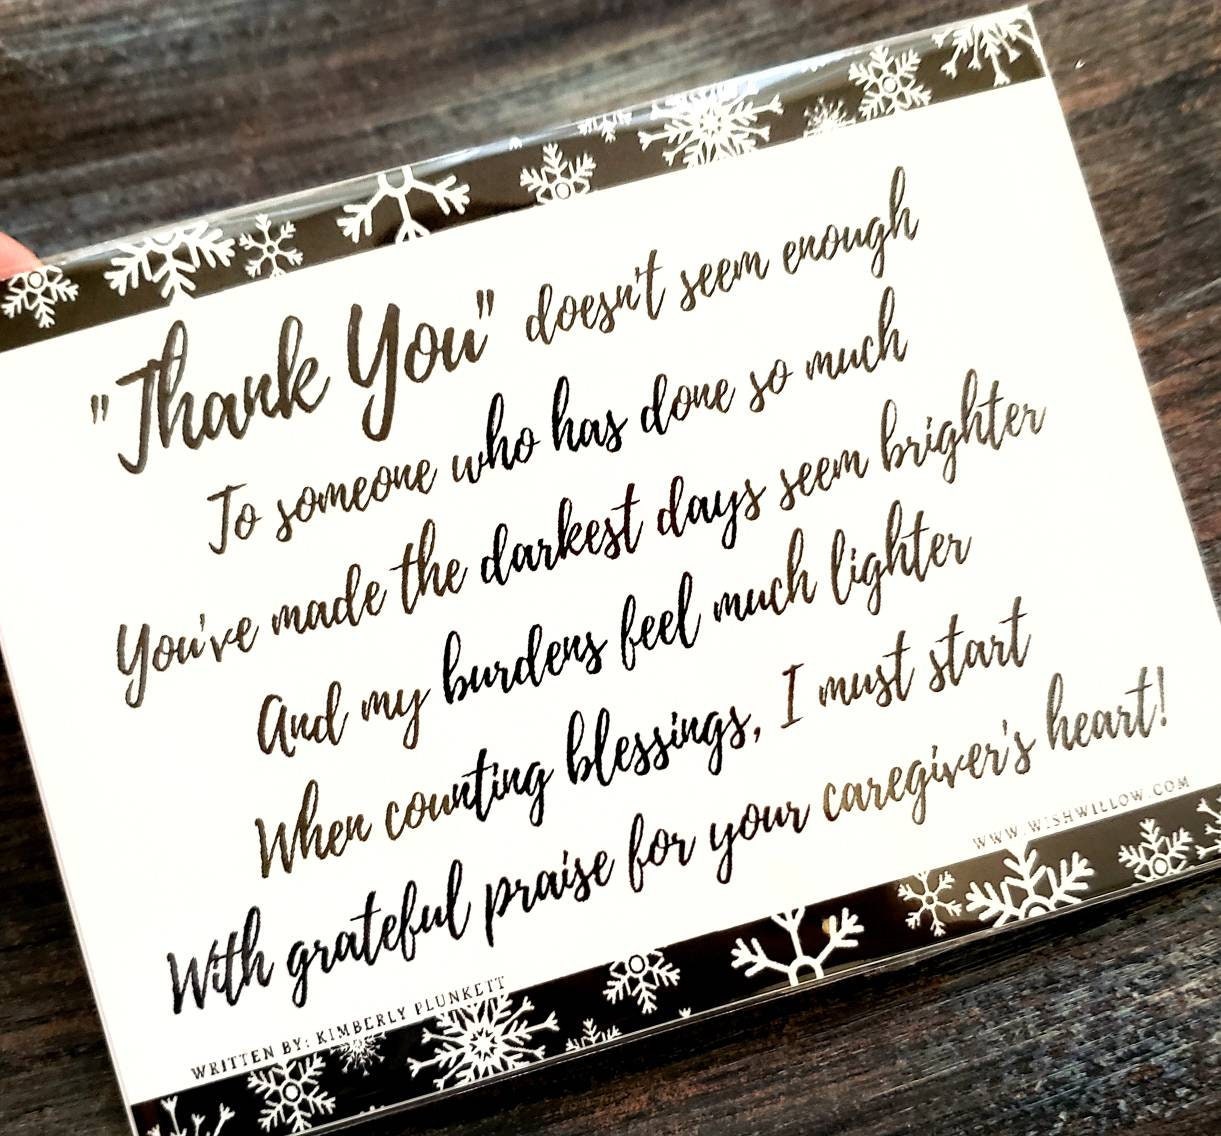 "Thank You" doesn't seem enough
To someone who has done so much
You've made the darkest days seem brighter
And my burdens feel much lighter
When counting blessings, I must start
With grateful praise for your caregiver's heart!
WWW.WISHWILLOW.COM
WRITTEN BY: KIMBERLY PLUNKETT